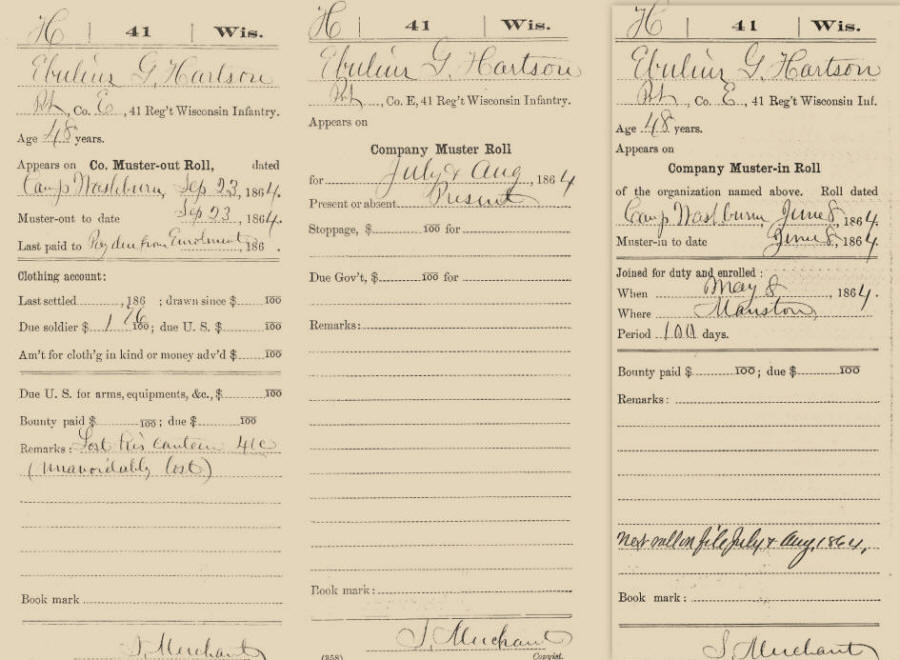 H | 41 | Wis.
Ebulius G. Hartson
Pvt, Co. E, 41 Reg't Wisconsin Infantry.
Age 48 years.
Appears on Co. Muster-out Roll, dated
Camp Washburn, Sep 23, 1864.
Muster-out to date Sep 23, 1864.
Last paid to Pay due from Enrolment, 186 .
Clothing account:
Last settled , 186 ; drawn since $ 100
Due soldier $ 1 76 100; due U. S. $ 100
Am't for cloth'g in kind or money adv'd $ 100
Due U. S. for arms, equipments, &c., $ 100
Bounty paid $ 100; due $ 100
Remarks: Lost his canteen 41c
(unavoidably lost)
Book mark
J. Merchant
H | 41 | Wis.
Ebulius G. Hartson
Pvt, Co. E, 41 Reg't Wisconsin Infantry.
Appears on
Company Muster Roll
for July & Aug, 1864
Present or absent Present
Stoppage, $ 100 for
Due Gov't, $ 100 for
Remarks:
Book mark:
J. Merchant
(358) Copyist.
H | 41 | Wis.
Ebulius G. Hartson
Pvt, Co. E, 41 Reg't Wisconsin Inf.
Age 48 years.
Appears on
Company Muster-in Roll
of the organization named above. Roll dated
Camp Washburn June 8, 1864
Muster-in to date June 8, 1864.
Joined for duty and enrolled:
When May 8, 1864.
Where Mauston,
Period 100 days.
Bounty paid $ 100; due $ 100
Remarks:
Next roll on file July & Aug, 1864,
Book mark:
J. Merchant